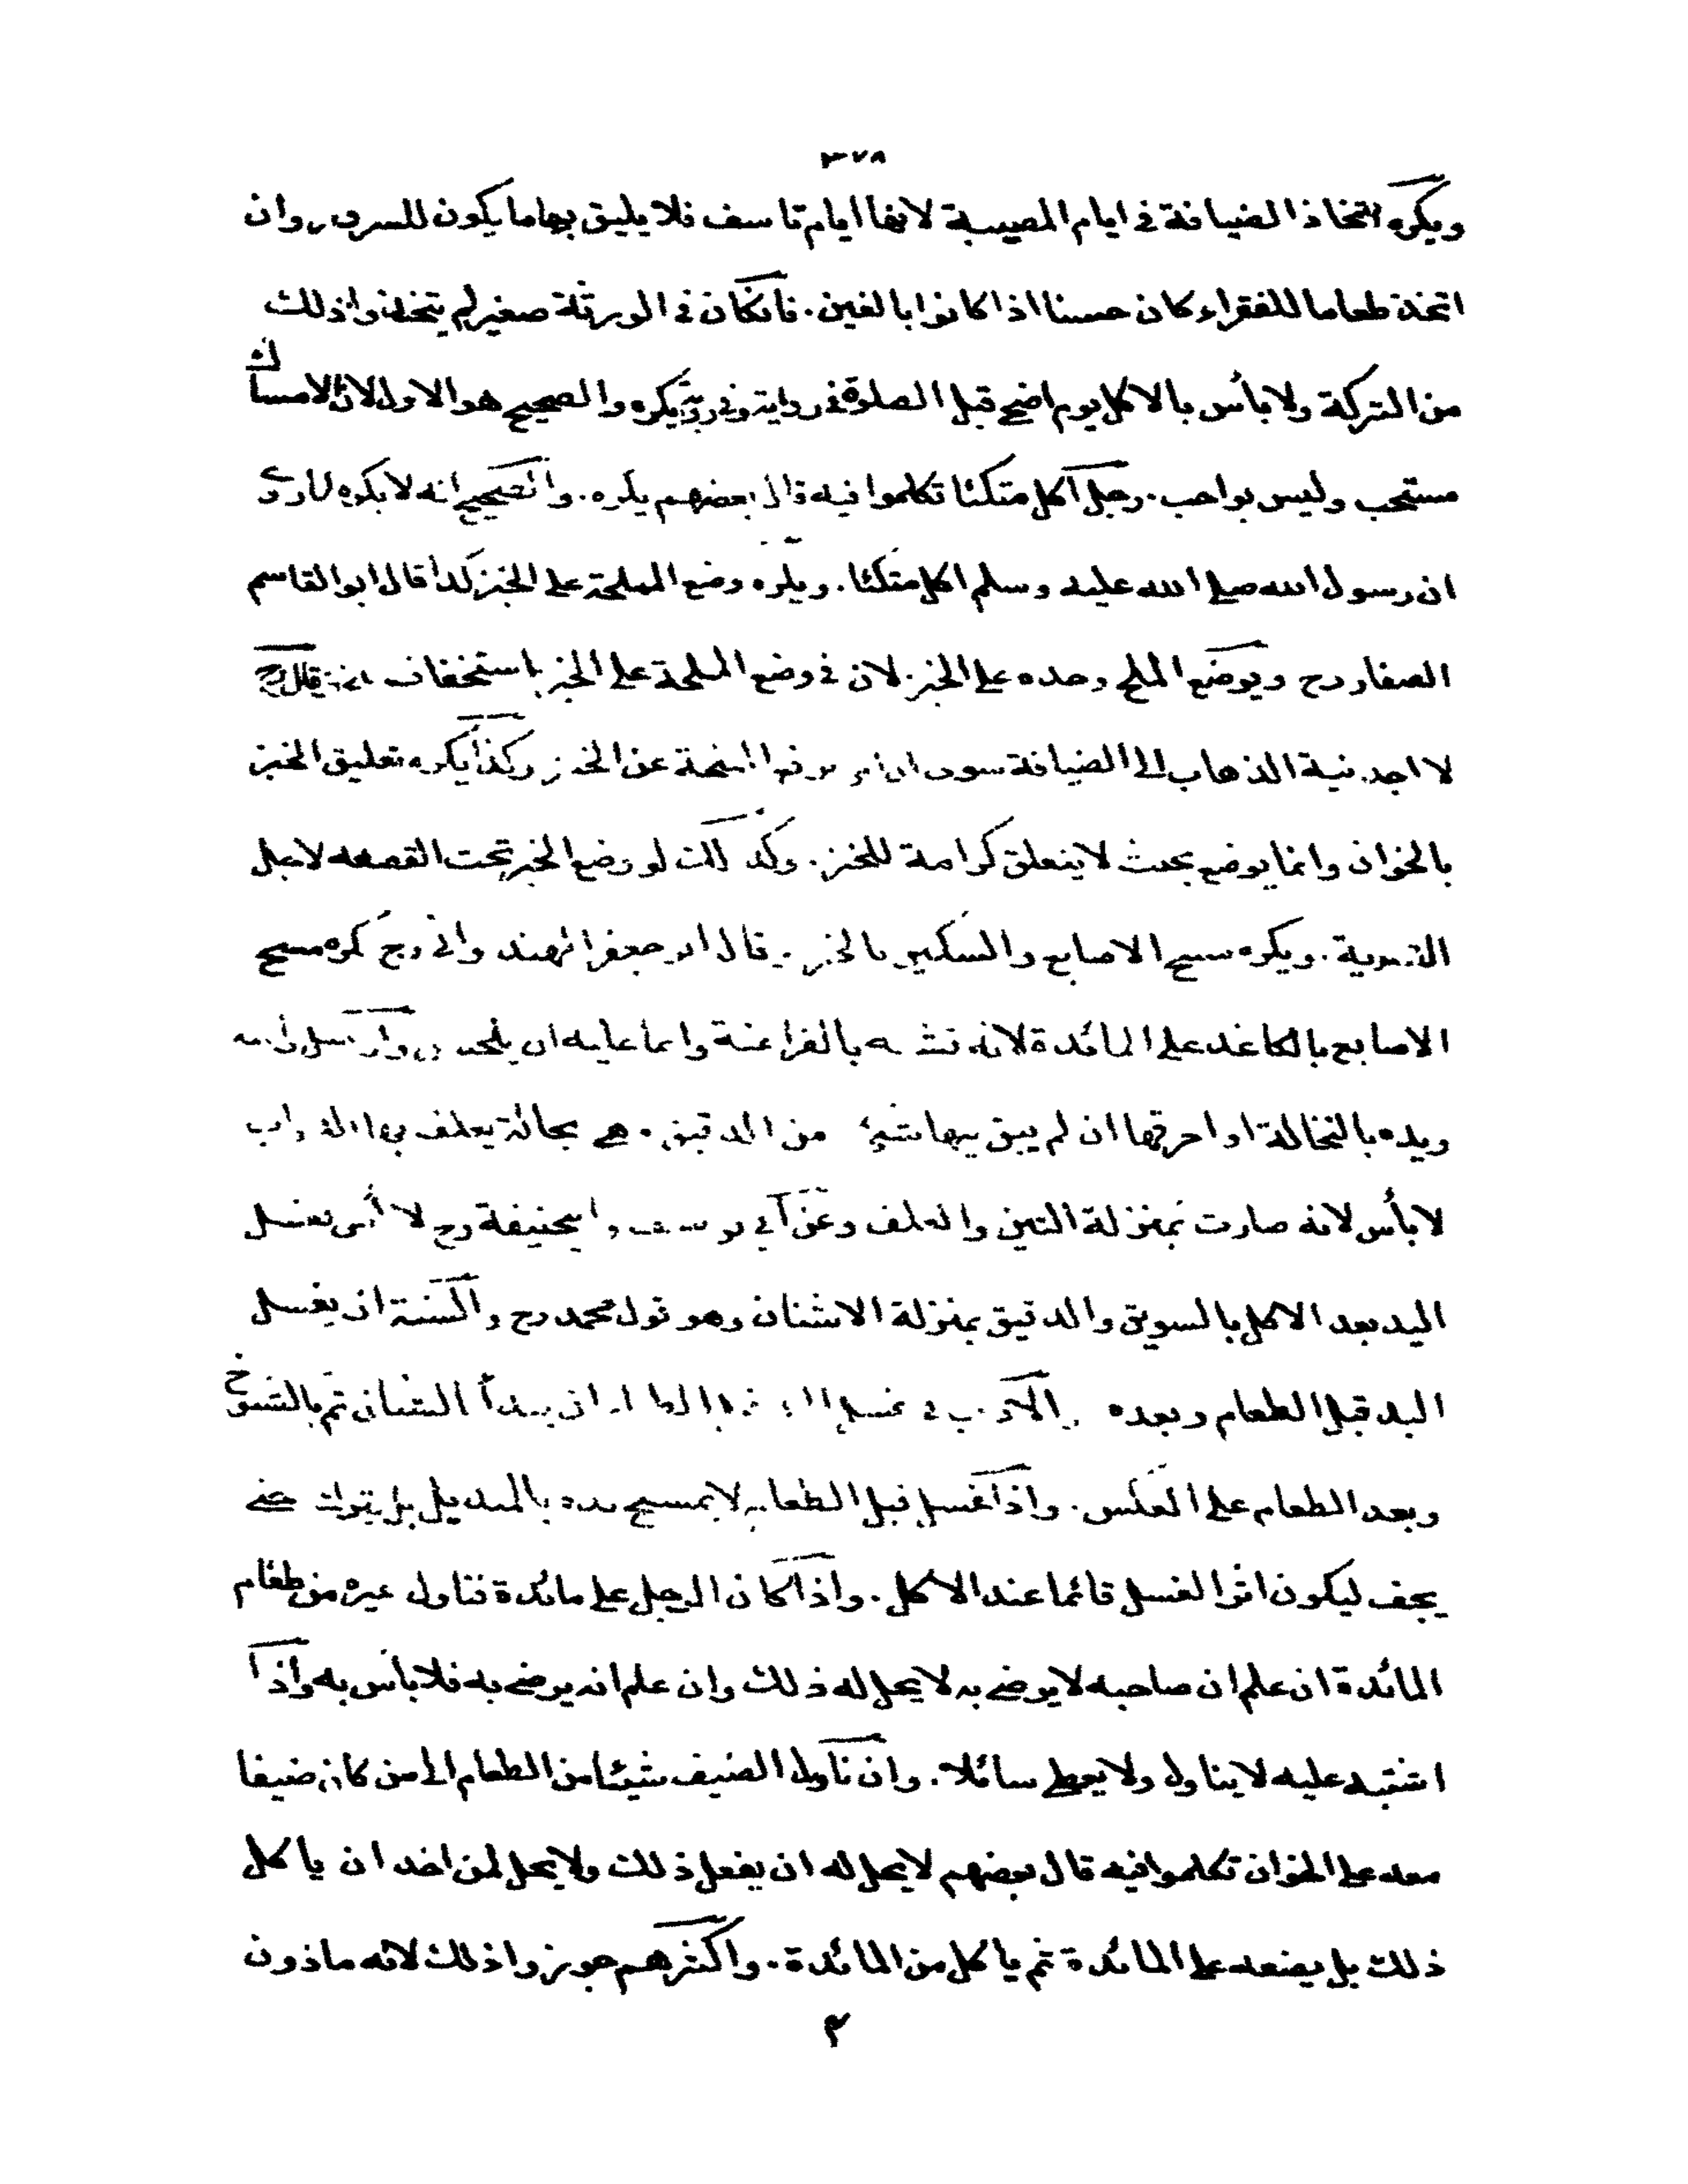 ٣٧٨
ويكره اتخاذ الضيافة في ايام المصيبة لانها ايام تاسف فلا يليق بها ما يكون للسرور وان
اتخذ طعاما للفقراء كان حسنا اذا كانوا بالغين. فانكان في الورثة صغير لم يتخذوا ذلك
من التركة ولا بأس بالاكل يوم اضحى قبل الصلوة في رواية وفي رواية يكره والصحيح هو الاول لان الامساك
مستحب وليس بواجب. رجل اكل متكئا تكلموا فيه قال بعضهم يكره. والصحيح انه لا يكره لما روى
ان رسول الله صلى الله عليه وسلم اكل متكئا. ويكره وضع المملحة على الخبز كذا قال ابو القاسم
الصفار رح ويوضع الملح وحده على الخبز لان في وضع المملحة على الخبز استخفاف قال رح
لا اجد نية الذهاب الى الضيافة سوى ان المملحة عن الخبز وكذا يكره تعليق الخبز
بالخوان وانما يوضع بحيث لا يتعلق كرامة للخبز. وكذلك لو وضع الخبز تحت القصعه لاجل
التسوية. ويكره مسح الاصابع والسكين بالخبز. وقال ابو جعفر الهندواني رح كره مسح
الاصابع بالكاغد على المائدة لانه تشبه بالفراعنة وانما عليه ان يلحس وان غسل رأسه
ويده بالنخالة او احرقها ان لم يبق فيها شيء من الدقيق وهي بحالة يعلف بها الدواب
لا بأس لانه صارت بمنزلة التبن والعلف وعن ابي يوسف وابيحنيفة رح لا بأس بغسل
اليد بعد الاكل بالسويق والدقيق بمنزلة الاشنان وهو قول محمد رح والسنة ان يغسل
اليد قبل الطعام وبعده والادب في غسل قبل الطعام ان يبدأ الشبان ثم بالشيوخ
وبعد الطعام على العكس. واذا غسل قبل الطعام لا يمسح يده بالمنديل بل يترك حتى
يجف ليكون اثر الغسل قائما عند الاكل. واذا كان الرجل على مائدة فناول غيره من طعام
المائدة ان علم ان صاحبه لا يرضى به لا يحل له ذلك وان علم انه يرضى به فلا بأس به واذا
اشتبه عليه لا يناول ولا يعطى سائلا. وان ناول الضيف شيئا من الطعام الى من كان ضيفا
معه على الخوان تكلموا فيه قال بعضهم لا يحل له ان يفعل ذلك ولا يحل لمن اخذ ان ياكل
ذلك بل يضعه على المائدة ثم ياكل من المائدة. واكثرهم جوزوا ذلك لانه ماذون